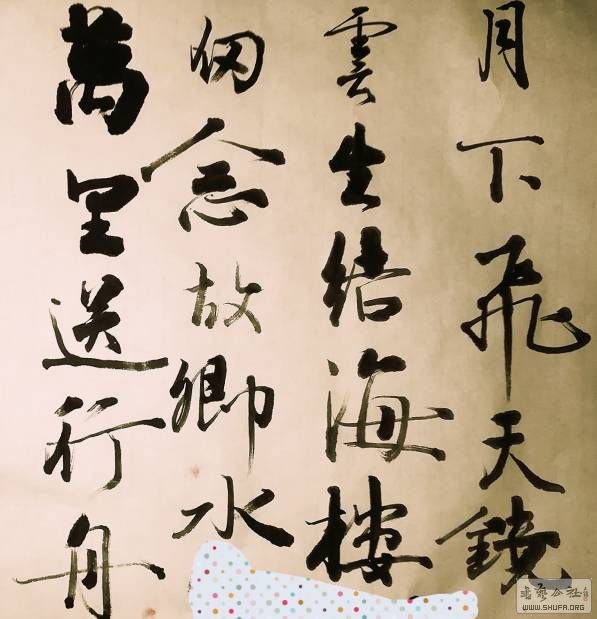 月下飛天鏡
雲生結海樓
仍念故鄉水
萬里送行舟
書藝公社
WWW.SHUFA.ORG